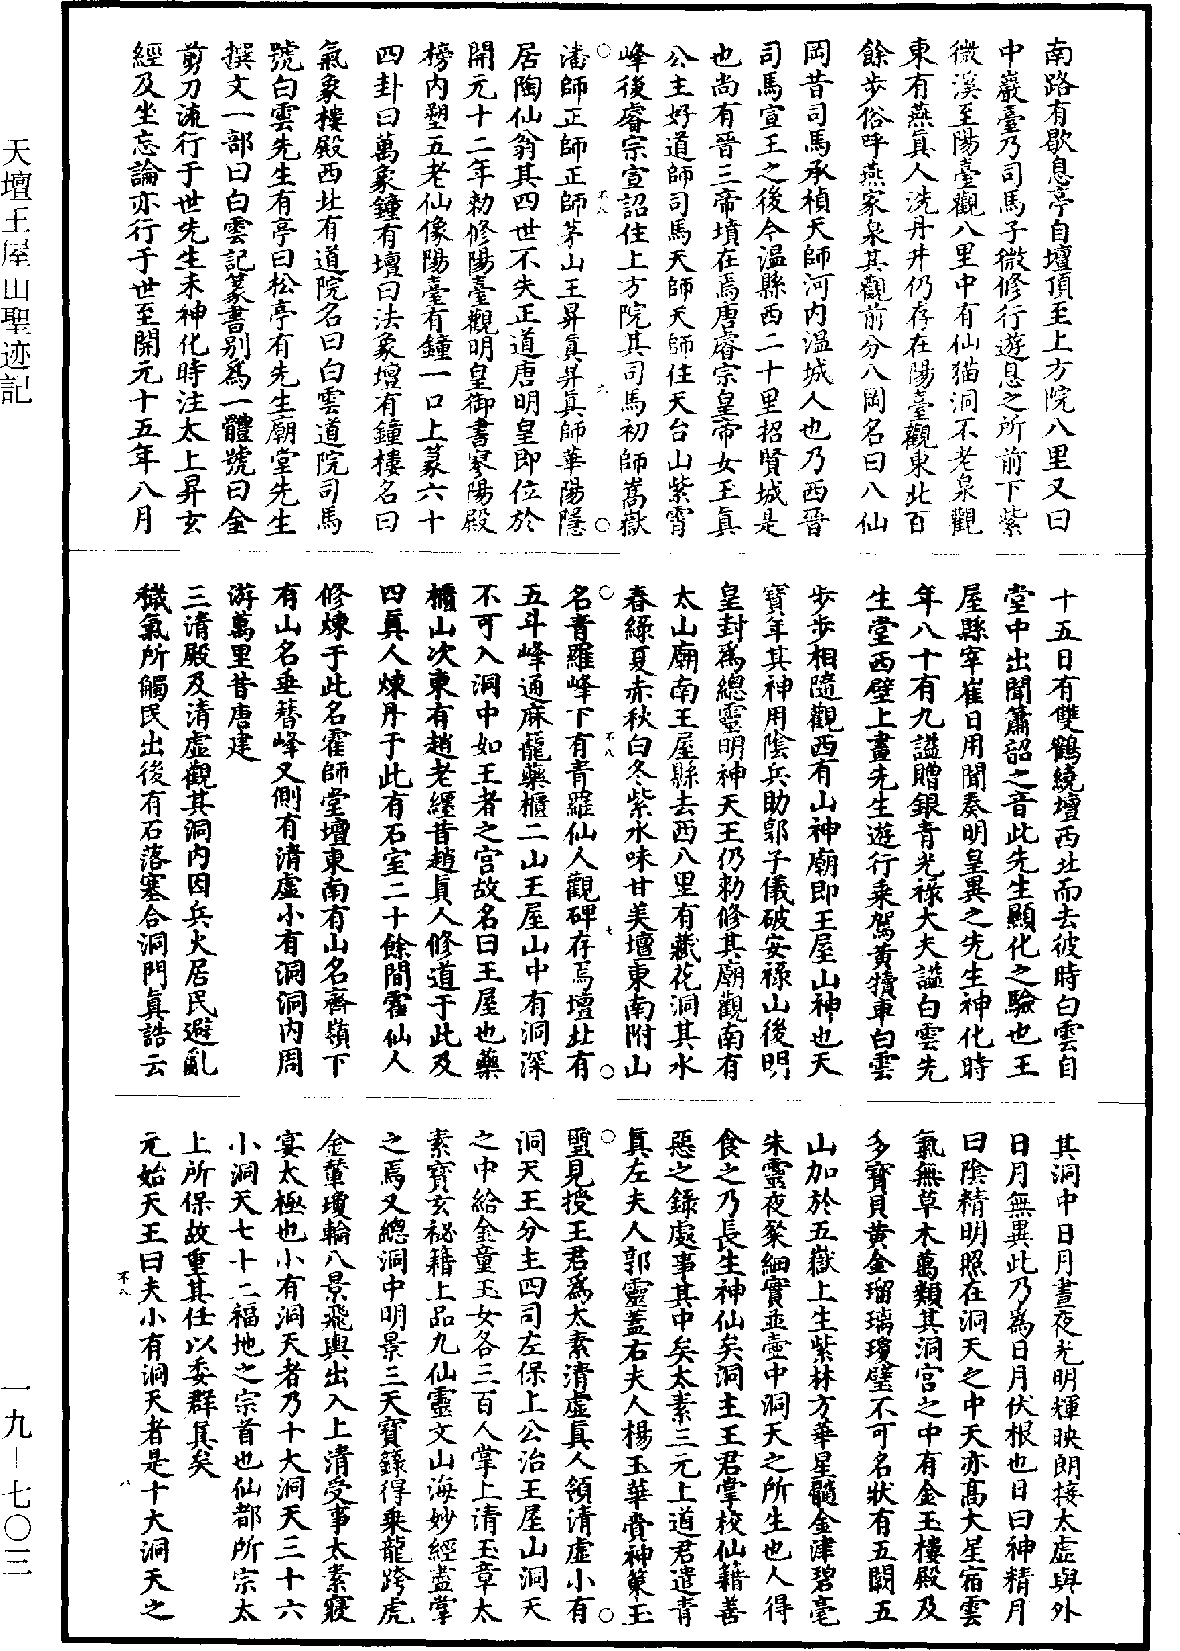 南路有歇息亭自壇頂至上方院八里又曰
中巖臺乃司馬子微修行遊息之所前下紫
微溪至陽臺觀八里中有仙猫洞不老泉觀
東有燕真人洗丹井仍存在陽臺觀東北百
餘步俗呼燕家泉其觀前分八岡名曰八仙
岡昔司馬承禎天師河内温城人也乃西晉
司馬宣王之後今温縣西二十里招賢城是
也尚有晉三帝墳在焉唐睿宗皇帝女玉真
公主好道師司馬天師天師住天台山紫霄
峰後睿宗宣詔住上方院其司馬初師嵩嶽
潘師正師正師茅山王昇真昇真師華陽隱
居陶仙翁其四世不失正道唐明皇即位於
開元十二年勑修陽臺觀明皇御書寥陽殿
榜内塑五老仙像陽臺有鐘一口上篆六十
四卦曰萬象鐘有壇曰法象壇有鐘樓名曰
氣象樓殿西北有道院名曰白雲道院司馬
號白雲先生有亭曰松亭有先生廟堂先生
撰文一部曰白雲記篆書别爲一體號曰金
剪刀流行于世先生未神化時注太上昇玄
經及坐忘論亦行于世至開元十五年八月
十五日有雙鶴繞壇西北而去彼時白雲自
堂中出聞簫韶之音此先生顯化之驗也王
屋縣宰崔日用聞奏明皇異之先生神化時
年八十有九謚贈銀青光禄大夫謚白雲先
生堂西壁上畫先生遊行乘駕黄犢車白雲
步步相隨觀西有山神廟即王屋山神也天
寶年其神用陰兵助郭子儀破安禄山後明
皇封爲總靈明神天王仍勑修其廟觀南有
太山廟南王屋縣去西八里有藏花洞其水
春綠夏赤秋白冬紫水味甘美壇東南附山
名青羅峰下有青羅仙人觀碑存焉壇北有
五斗峰通麻籠藥櫃二山王屋山中有洞深
不可入洞中如王者之宫故名曰王屋也藥
櫃山次東有趙老纆昔趙真人修道于此及
四真人煉丹于此有石室二十餘間霍仙人
修煉于此名霍師堂壇東南有山名齊嶺下
有山名垂簪峰又側有清虚小有洞洞内周
游萬里昔唐建
三清殿及清虚觀其洞内因兵火居民避亂
穢氣所觸民出後有石落塞合洞門真誥云
其洞中日月晝夜光明輝映朗接太虚與外
日月無異此乃爲日月伏根也日曰神精月
曰陰精明照在洞天之中天亦高大星宿雲
氣無草木萬類其洞宫之中有金玉樓殿及
多寶貝黄金瑠璃瓊璧不可名狀有五闕五
山加於五嶽上生紫林方華星髓金津碧毫
朱靈夜粲細實並壺中洞天之所生也人得
食之乃長生神仙矣洞主王君掌校仙籍善
惡之錄處事其中矣太素三元上道君遣青
真左夫人郭靈蓋右夫人楊玉華賫神策玉
璽見授王君爲太素清虚真人領清虚小有
洞天王分主四司左保上公治王屋山洞天
之中給金童玉女各三百人掌上清玉章太
素寶玄祕籍上品九仙靈文山海妙經盡掌
之焉又總洞中明景三天寶籙得乘龍跨虎
金輦瓊輪八景飛輿出入上清受事太素寢
宴太極也小有洞天者乃十大洞天三十六
小洞天七十二福地之宗首也仙都所宗太
上所保故重其任以委群真矣
元始天王曰夫小有洞天者是十大洞天之
不八 六
不八 七
不八 八
天壇王屋山聖迹記
一九—七〇三